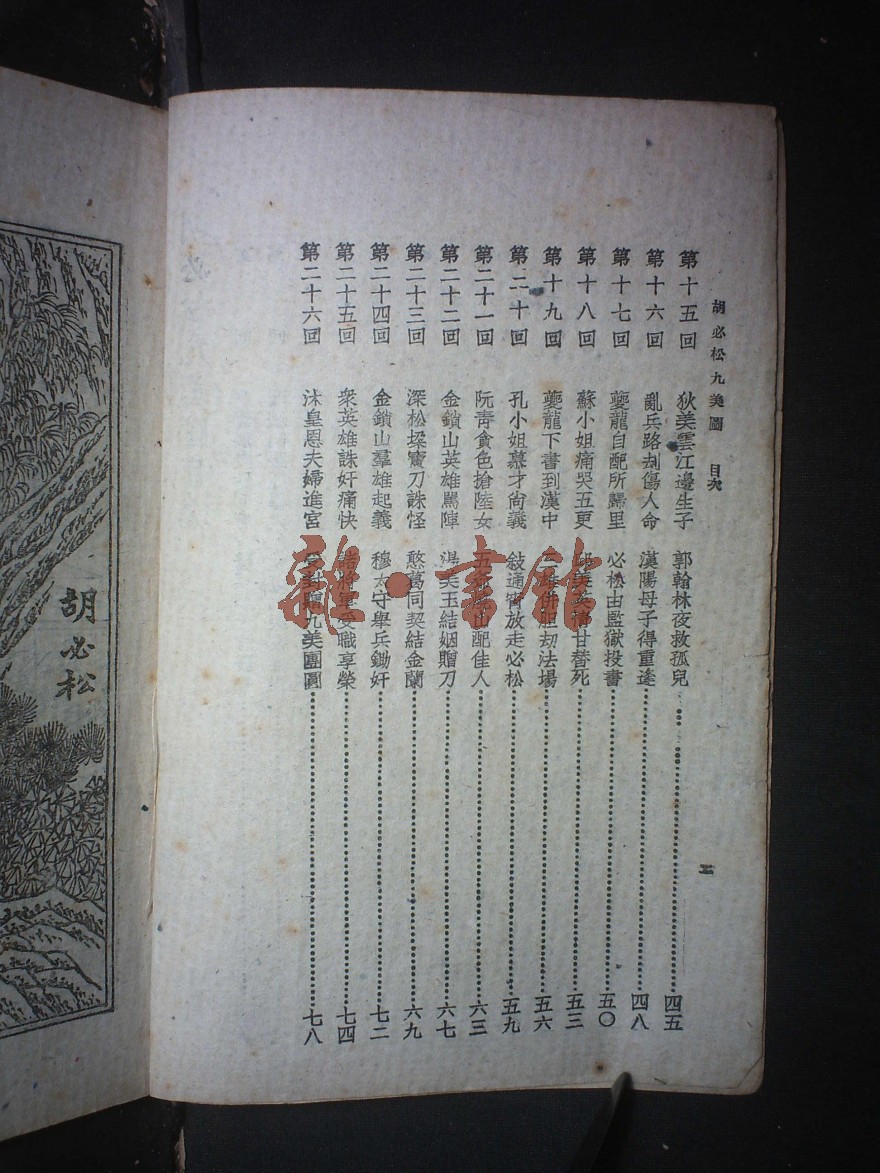 胡必松九美圖　目次
第十五回　狄美雲江邊生子　郭翰林夜救孤兒　四五
第十六回　亂兵路刦傷人命　漢陽母子得重逢　四八
第十七回　夔龍自配所歸里　必松由監獄投書　五〇
第十八回　蘇小姐痛哭五更　美英情甘替死　五三
第十九回　夔龍下書到漢中　劫法場　五六
第二十回　孔小姐慕才尙義　敍通宵放走必松　五九
第二十一回　阮靑貪色搶陸女　山配佳人　六三
第二十二回　金鎖山英雄罵陣　湯美玉結姻贈刀　六七
第二十三回　深松採寶刀誅怪　憨萬同契結金蘭　六九
第二十四回　金鎖山羣雄起義　穆太守舉兵鋤奸　七二
第二十五回　衆英雄誅奸痛快　諸將軍受職享榮　七四
第二十六回　沐皇恩夫婦進宮　受封贈九美團圓　七八
胡必松
雜·書館